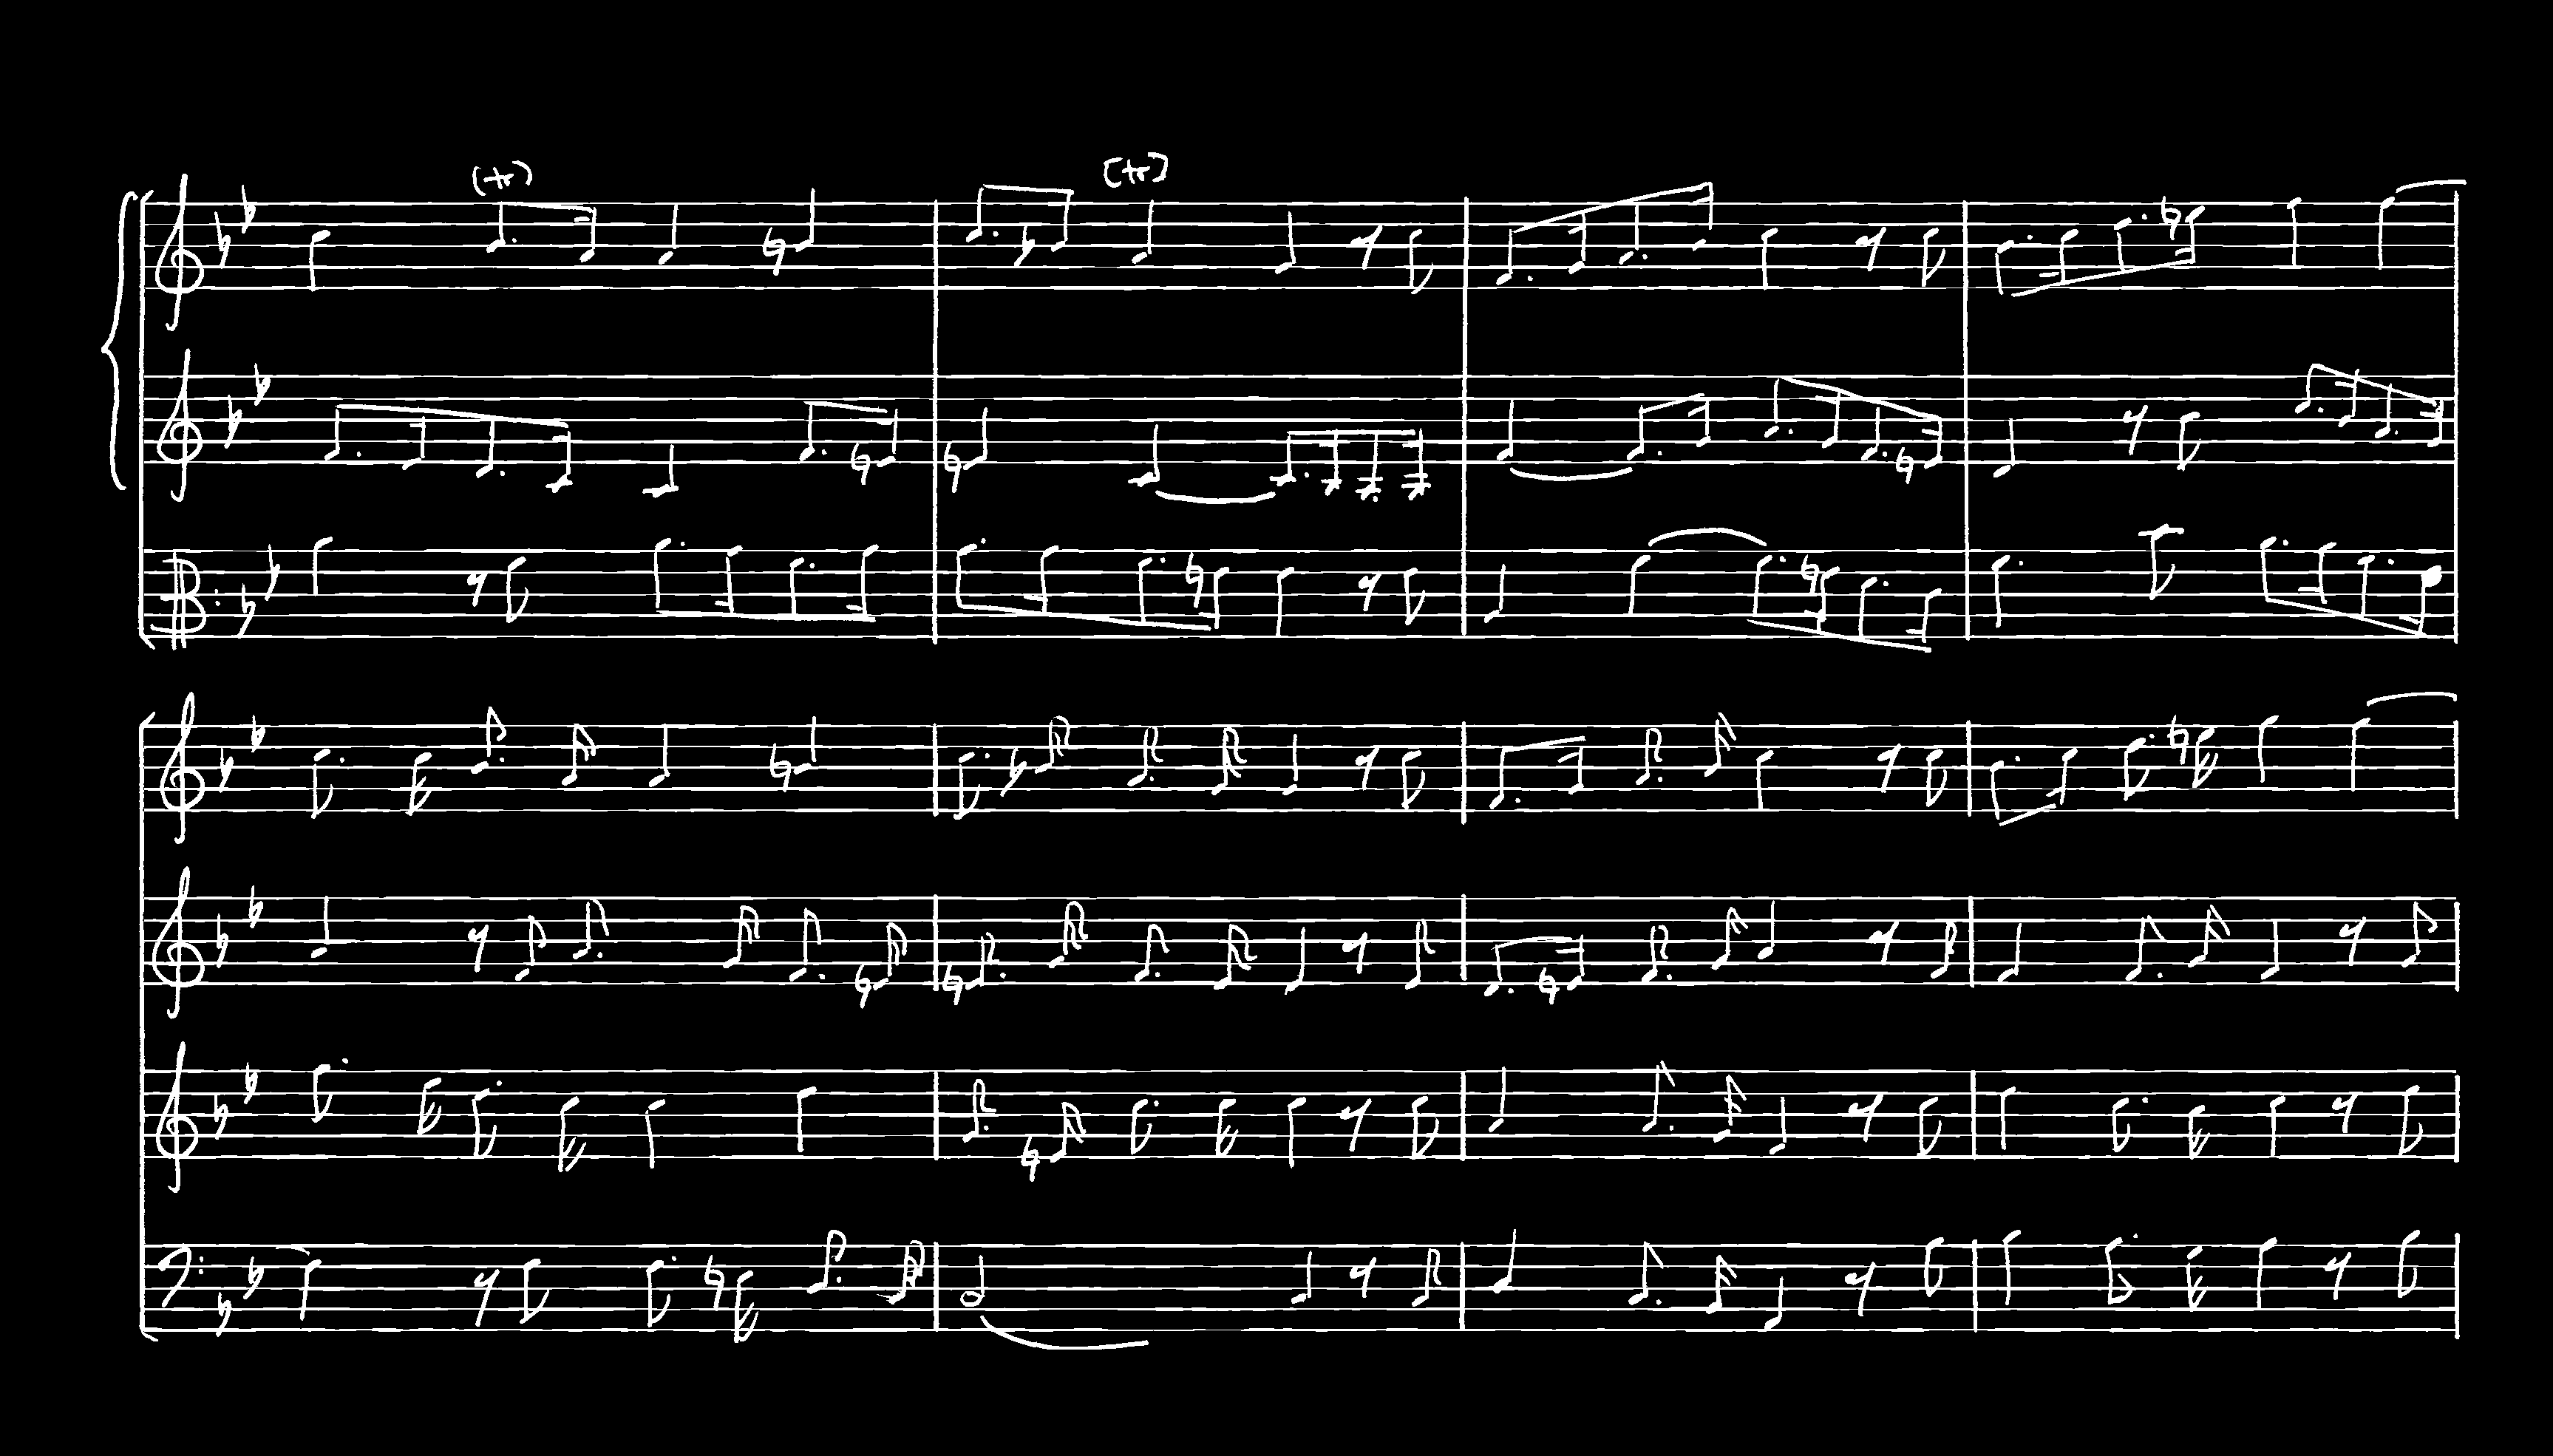 (tr) [tr]